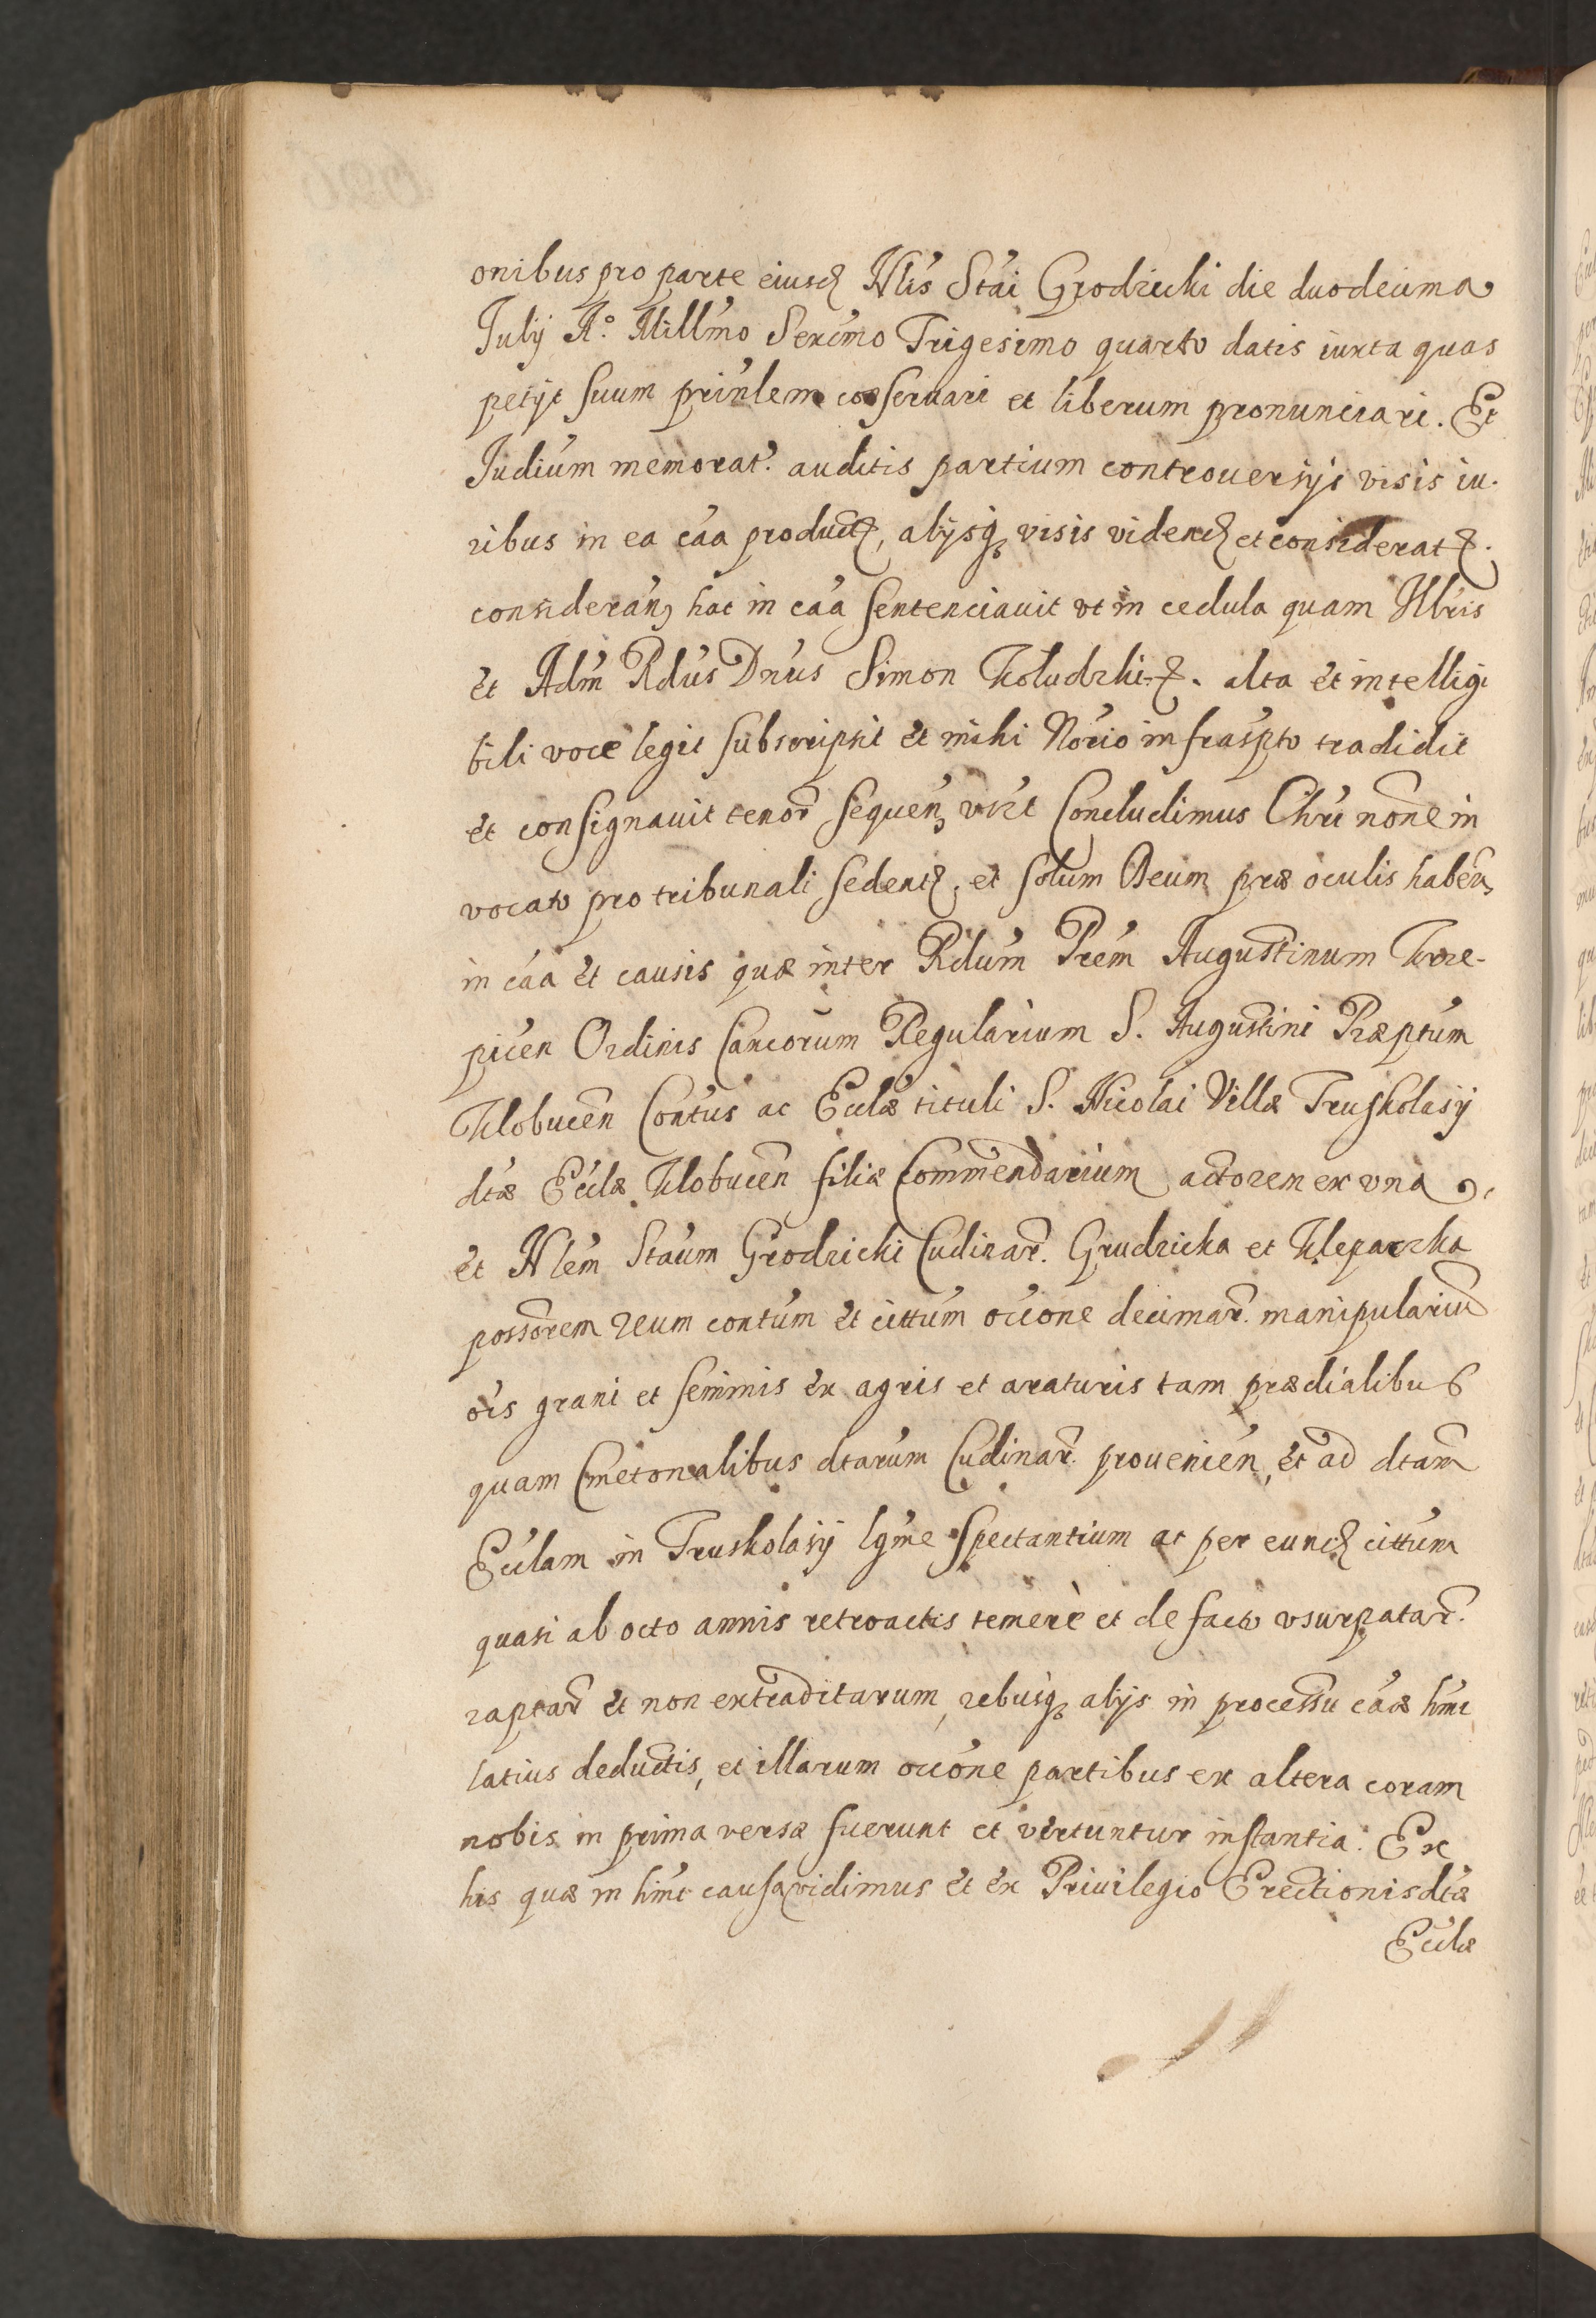 onibus pro parte eiusd Nlis Stai Grodzicki die duodecima
Julij A.º Millmo Sexcmo Trigesimo quarto datis iuxta quas
petijt suum prinlem coseruari et liberum pronunciari. Et
Judium memorat. auditis partium controuersijs visis iu-
ribus in ea caa product, alijsq visis vidend et considerat.
consideran hac in caa sentenciauit vt in cedula quam Illris
et Adm Rdus Dnus Simon Koludzki. alta et intelligi
bili voce legit subscripsit et mihi Norio infraspto tradidit
et consignauit tenor sequen vizt Concludimus Chri none in
vocato pro tribunali sedent, et solum Deum præ oculis haben
in caa et causis quæ inter Rdum Prem Augustinum Krze-
picen Ordinis Cancorum Regularium S. Augustini Præptum
Klobucen Contus ac Eccla tituli S. Nicolai Villæ Truskolasÿ
dtæ Ecclæ Klobucen filiæ Commendarium actorem ex vna,
et Nlem Staum Grodzicki Cudinar. Grudzicka et Kleparzka
possorem reum contum et cittum occone decimar. manipulariu
ois grani et seminis ex agris et araturis tam prædialibus
quam Cmetonalibus dtarum Cudinar. prouenien, et ad dtam
Ecclam in Truskolasÿ lgme spectantium ac per eund cittum
quasi ab octo annis retroactis temerè et de facto vsurpatar.
raptar et non extraditarum, rebusq alijs in processu caæ hmoi
latius deductis, et illarum occone partibus ex altera coram
nobis in prima versæ fuerunt et vertuntur instantia. Ex
his quæ in hmoi causa vidimus et ex Priuilegio Erectionis dtæ
Ecclæ